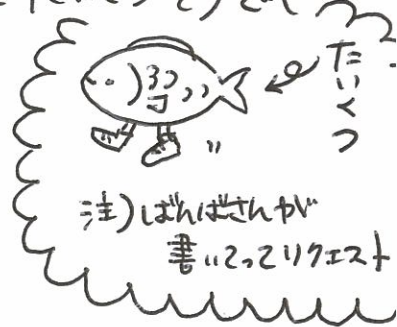 たいくつ
注)ばんばさんが
書いてってリクエスト